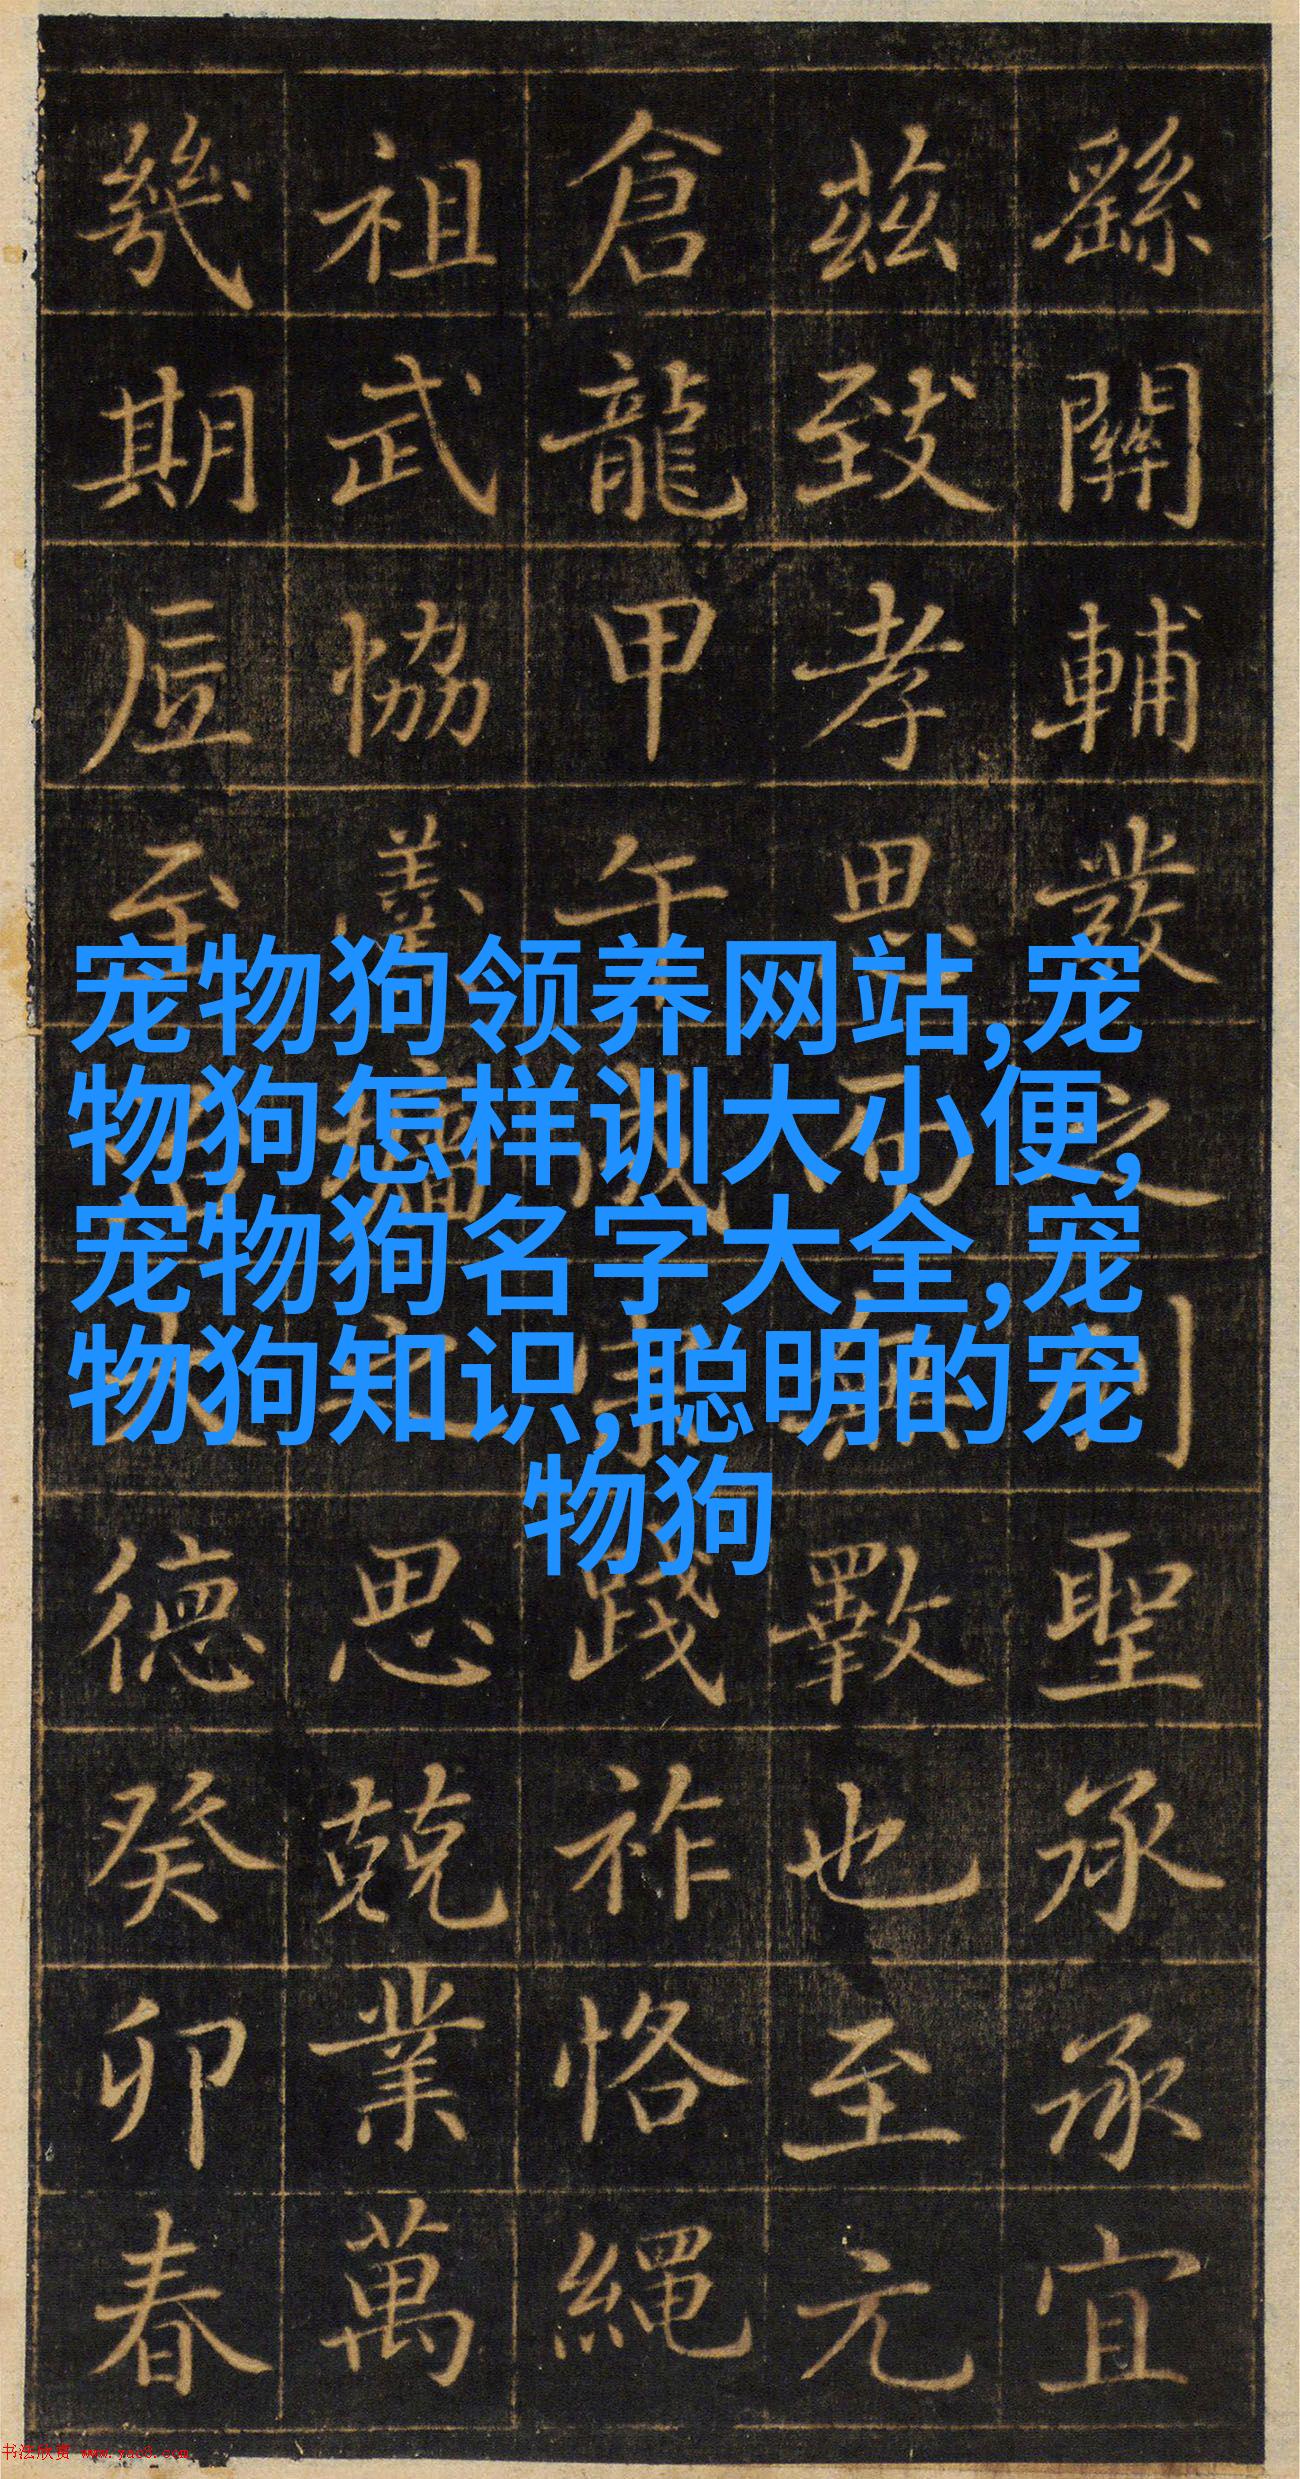 宠物狗领养网站,宠
物狗怎样训大小便,
宠物狗名字大全,宠
物狗知识,聪明的宠
物狗
繇關輔發之聖承承宜
茲致孝思而無斁也至元
倉龍甲午成宗踐祚恪繩
祖武協羹墻之思兢業萬
幾期至治大德癸卯春
书法欣赏 www.yac8.com